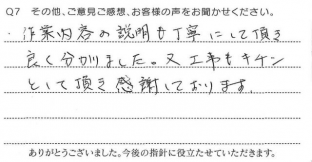 Q7 その他、ご意見ご感想、お客様の声をお聞かせください。
・作業内容の説明も丁寧にして頂き
良く分かりました。又工事もキチン
として頂き感謝しております。
ありがとうございました。今後の指針に役立たせていただきます。